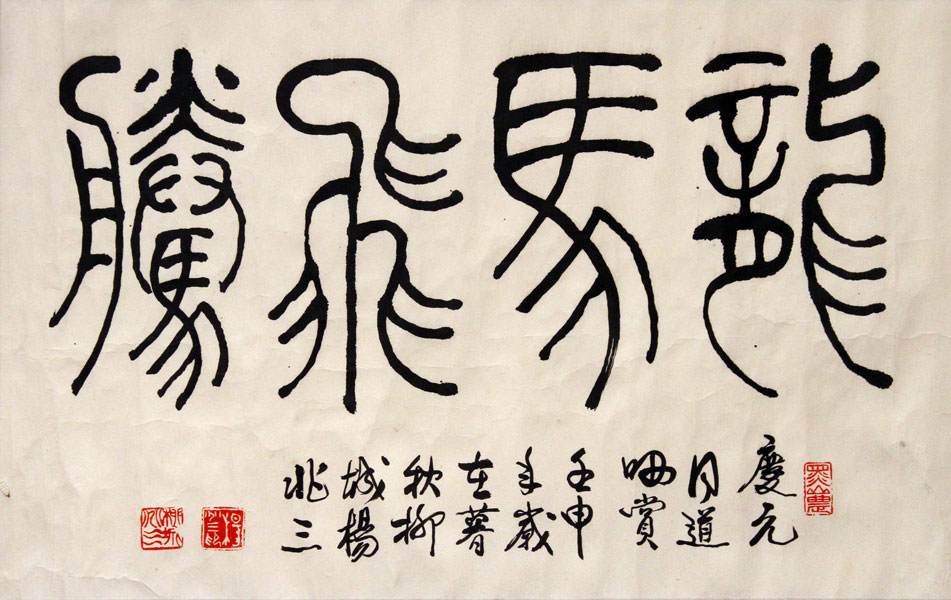 龍馬飛騰
慶元
同道
哂賞
壬申
年歲
在暮
秋柳
城楊
兆三